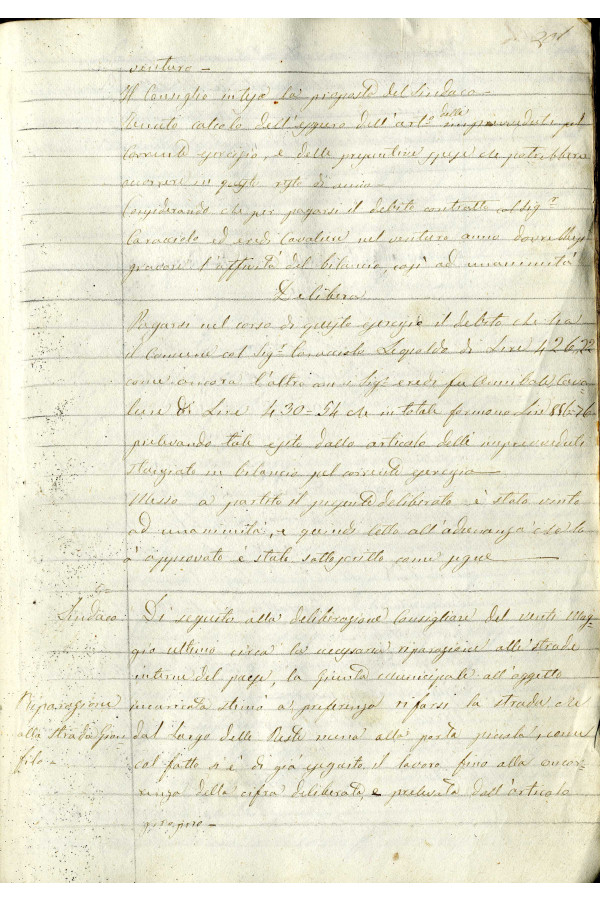 201
venturo -
Il Consiglio intesa la proposta del Sindaco -
Tenuto calcolo dell'esguro dell'art.° delle impreviduti pel
corrente esercizio, e delle preventive spese che potrebbero
occorrere in questo resto di anno -
Considerando che per pagarsi il debito contratto col Sig.r
Caracciolo ed eredi Cavaliere nel venturo anno dovrebbesi
gravare l'affinità del bilancio, così ad unanimità
Delibera
Pagarsi nel corso di questo esercizio il debito che ha
il Comune col Sig.r Caracciolo Leopoldo di Lire 426,22
come ancora l'altro con i Sig.i eredi fu Annibale Cava-
liere di Lire 430-54 che in totale formano Lire 856-76
prelevando tale esito dallo articolo delle impreveduti
stanziate in bilancio pel corrente esercizio
Messo a partito il presente deliberato è stato vinto
ad unanimità, e quindi letto all'adunanza che lo
à approvato è stato sottoscritto come segue
Sindaco: Di seguito alla deliberazione Consigliare del venti Mag-
gio ultimo circa la necessaria riparazione alle strade
interne del paese, la Giunta municipale all'oggetto
incaricata stimò a preferenza rifarsi la strada che
dal Largo delle Reste mena alla porta piccola, come
col fatto si è di già eseguito il lavoro fino alla concor-
renza della cifra deliberata, e prelevata dall'articolo
Riparazione
alla strada Gian-
filo -